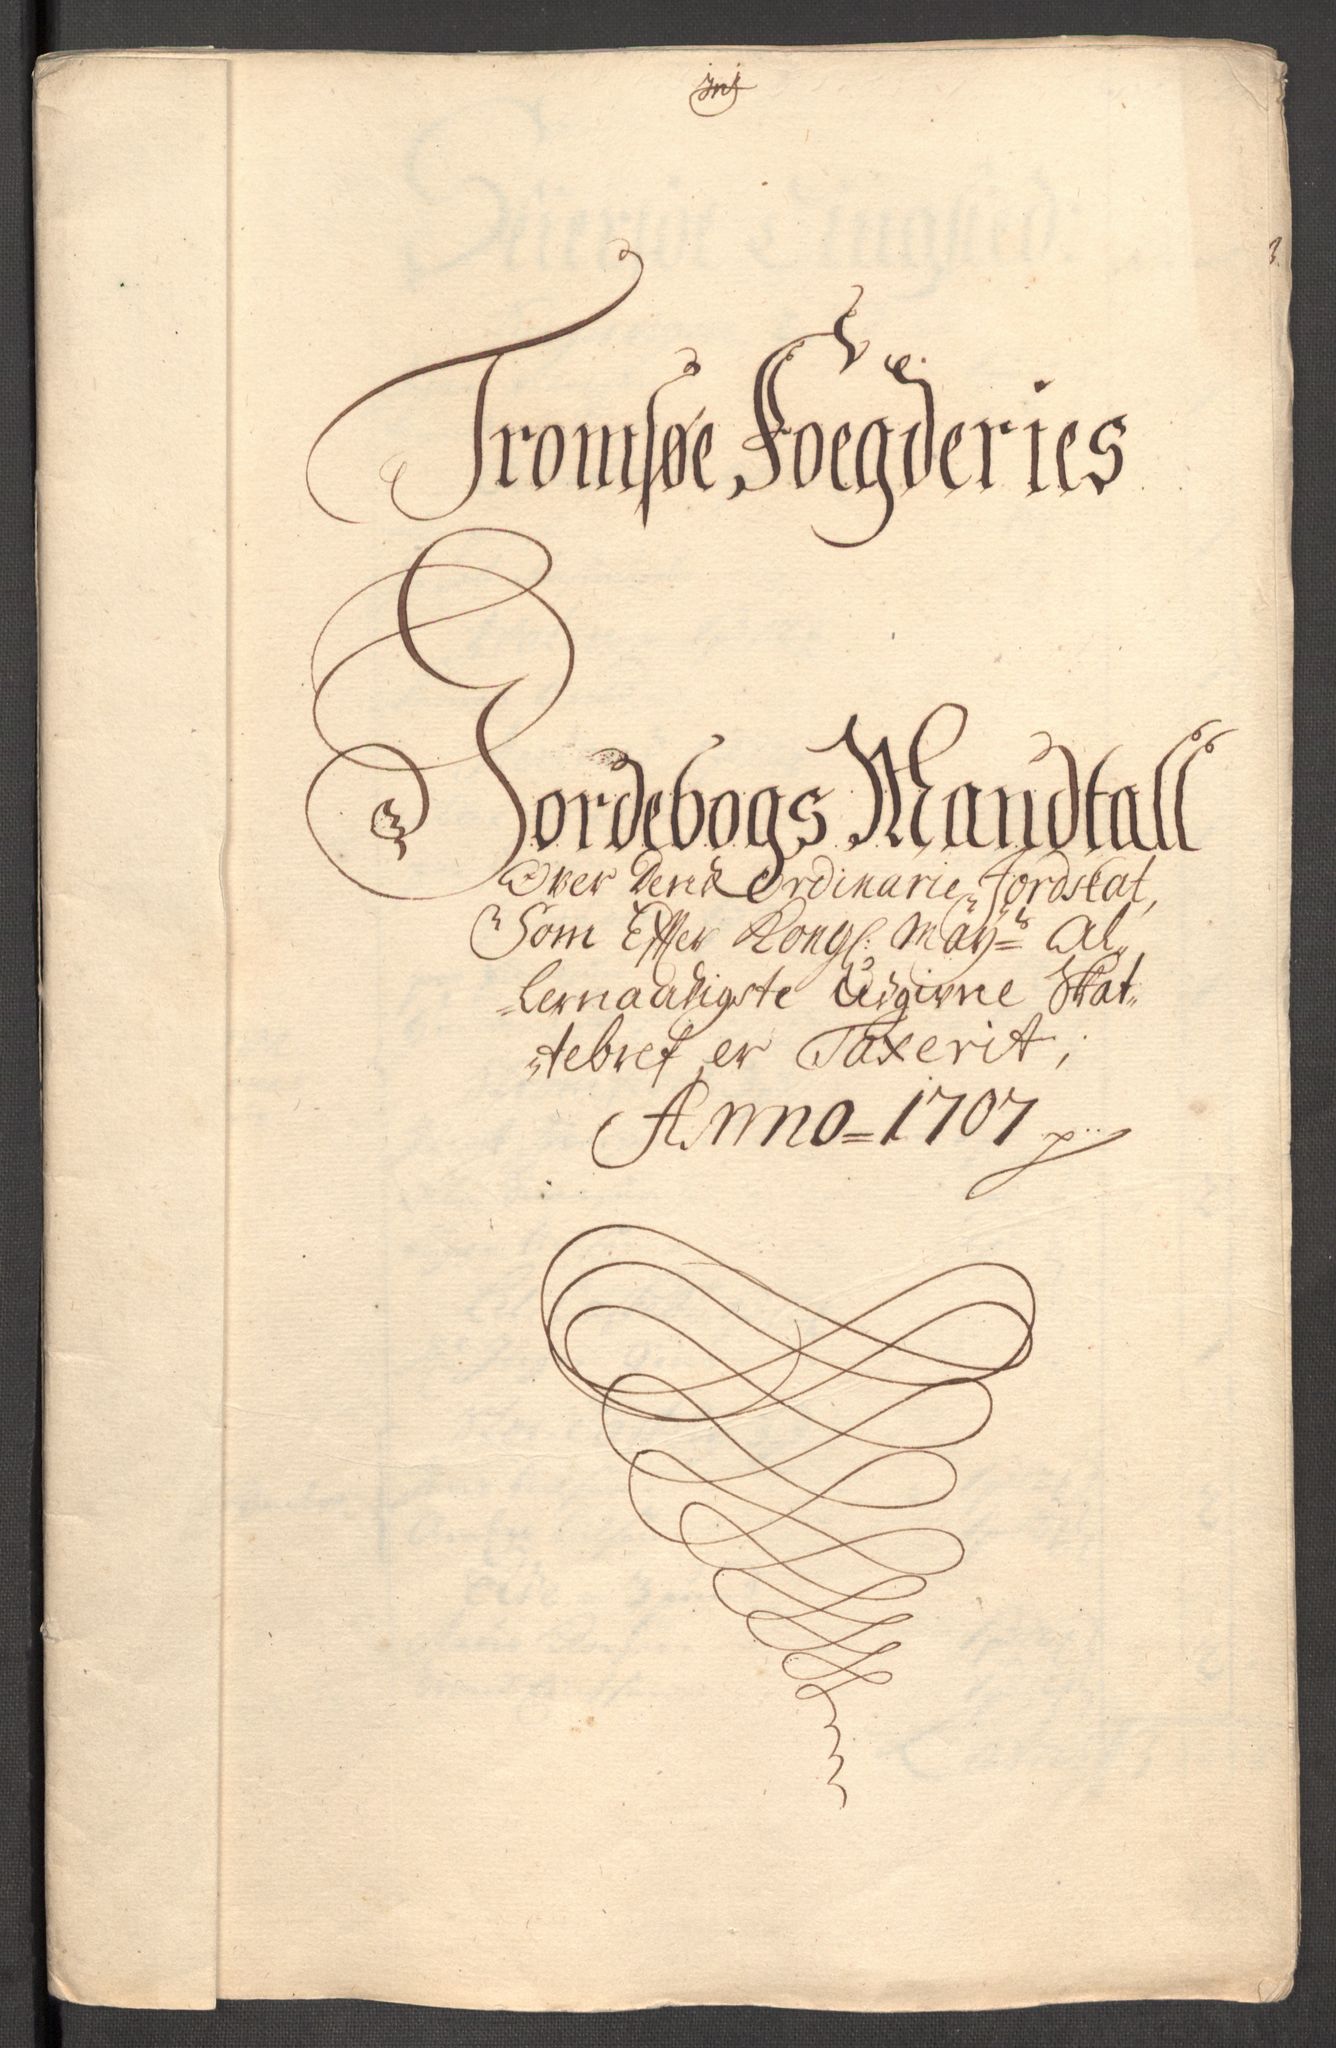 Tromsøe Foegderies
Jordebogs Mandtall
Over Dend Ordinarie Jordskat,
Som Effter Kongl: May:ts Al-
-lernaadigste Udgivne Skat-
-tebref er Taxerit,
Anno=1707
3.